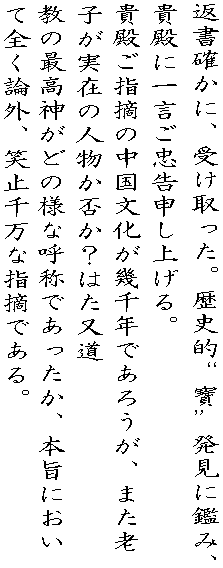 返書確かに、受け取った。歴史的“寳”発見に鑑み、
貴殿に一言ご忠告申し上げる。
貴殿ご指摘の中国文化が幾千年であろうが、また老
子が実在の人物か否か？はた又道
教の最高神がどの様な呼称であったか、本旨におい
て全く論外、笑止千万な指摘である。